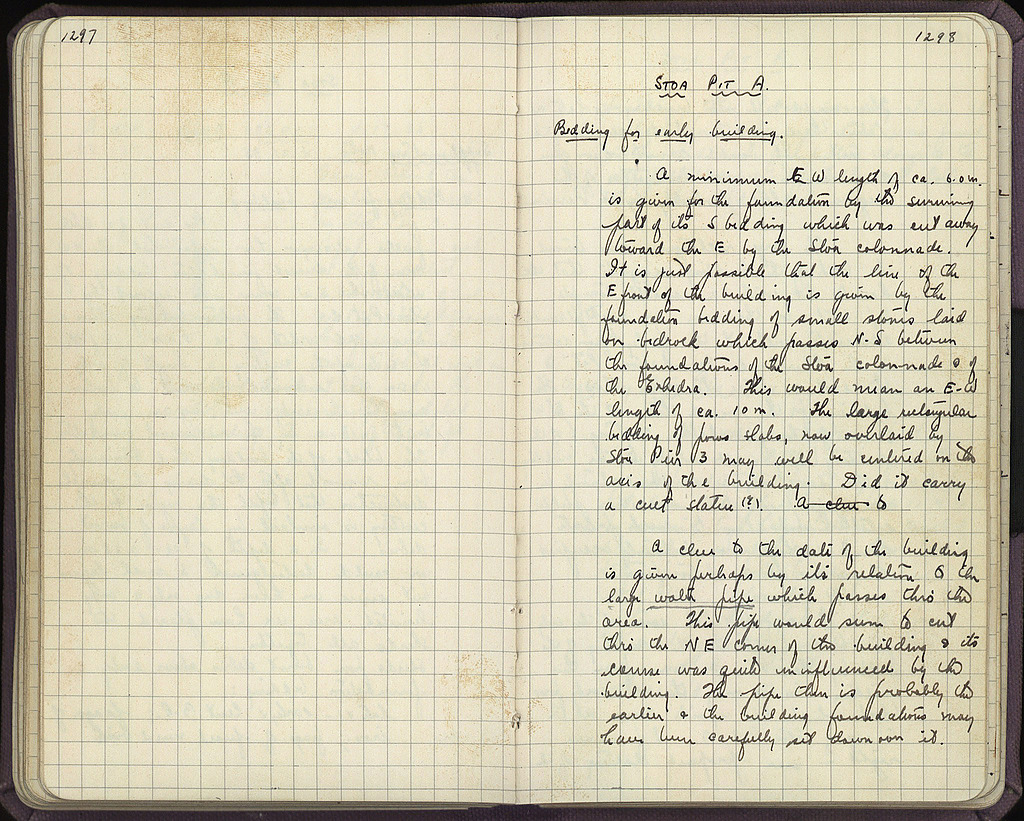 1297
1298
STOA PIT A.
Bedding for early building.
A minimum E W length of ca. 6.0 m.
is given for the foundation by the surviving
part of its S bedding which was cut away
toward the E by the Stoa colonnade.
It is just possible that the line of the
E front of the building is given by the
foundation bedding of small stones laid
on bedrock which passes N-S between
the foundations of the Stoa colonnade & of
the Exhedra. This would mean an E-W
length of ca. 10 m. The large rectangular
bedding of poros slabs, now overlaid by
Stoa Pier 3 may well be centered on the
axis of the building. Did it carry
a cult statue (?). A clue to
A clue to the date of the building
is given perhaps by its relation to the
large water pipe which passes thro the
area. This pipe would seem to cut
thro the NE corner of the building & its
course was quite uninfluenced by the
building. The pipe then is probably the
earlier & the building foundations may
have been carefully set down on it.